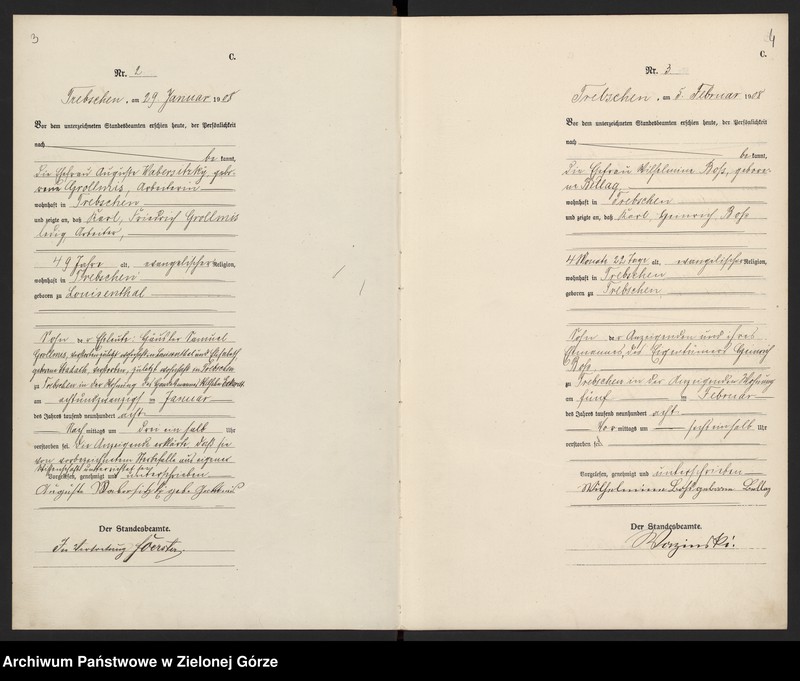 3
C.
Nr. 2
Trebschen, am 29 Januar 1908
Vor dem unterzeichneten Standesbeamten erschien heute, der Persönlichkeit
nach
be kannt,
die Ehefrau Auguste Wabersitzky gebo-
rene Grollmis, Arbeiterin
wohnhaft in Trebschen
und zeigte an, daß Karl, Friedrich Grollmis
ledig, Arbeiter,
49 Jahre alt, evangelischer Religion,
wohnhaft in Trebschen
geboren zu Louisenthal
Sohn der Eheleute: Häusler Samuel
Grollmis, verstorben zuletzt wohnhaft in und Elisabeth
geborene verstorben, zuletzt wohnhaft in Trebschen
zu Trebschen in der Wohnung des Wilhelm
am achtundzwanzigsten Januar
des Jahres tausend neunhundert acht
Nach mittags um drei ein halb Uhr
verstorben sei. Die Anzeigende erklärte, daß sie
von vorbezeichnetem Sterbefalle aus eigener
Wissenschaft unterrichtet sei
Vorgelesen, genehmigt und unterschrieben
Auguste Wabersitzky geb
Der Standesbeamte.
In Vertretung Foerster.
4
C.
Nr. 3
Trebschen, am 5. Februar 1908
Vor dem unterzeichneten Standesbeamten erschien heute, der Persönlichkeit
nach
be kannt,
die Ehefrau Wilhelmine Boß, gebore-
ne
wohnhaft in Trebschen
und zeigte an, daß Karl, Heinrich Boß
4 Monate 22 Tage alt, evangelischer Religion,
wohnhaft in Trebschen
geboren zu Trebschen
Sohn der Anzeigenden und ihres
Ehemannes, des Eigentümers Heinrich
Boß
zu Trebschen in der Anzeigenden Wohnung
am fünften Februar
des Jahres tausend neunhundert acht
Vor mittags um sechs ein halb Uhr
verstorben sei.
Vorgelesen, genehmigt und unterschrieben
Wilhelmine Boß geborene
Der Standesbeamte.
Wozinski.
Archiwum Państwowe w Zielonej Górze